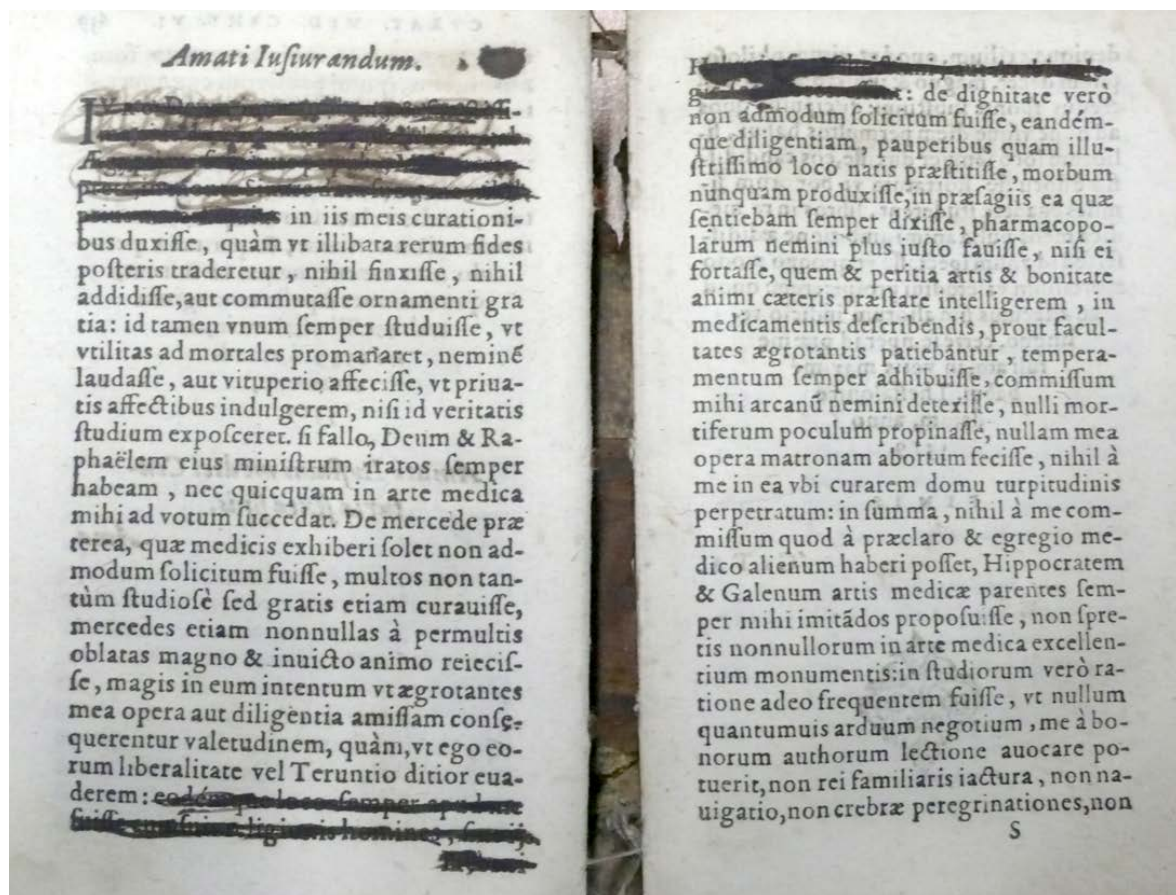 Amati Iusiurandum.
in iis meis curationi-
bus duxisse, quàm vt illibara rerum fides
posteris traderetur, nihil finxisse, nihil
addidisse, aut commutasse ornamenti gra
tia: id tamen vnum semper studuisse, vt
vtilitas ad mortales promanaret, neminē
laudasse, aut vituperio affecisse, vt priua-
tis affectibus indulgerem, nisi id veritatis
studium exposceret. si fallo, Deum & Ra-
phaëlem eius ministrum iratos semper
habeam, nec quicquam in arte medica
mihi ad votum succedat. De mercede præ
terea, quæ medicis exhiberi solet non ad-
modum solicitum fuisse, multos non tan-
tùm studiosè sed gratis etiam curauisse,
mercedes etiam nonnullas à permultis
oblatas magno & inuicto animo reiecis-
se, magis in eum intentum vt ægrotantes
mea opera aut diligentia amissam conse-
querentur valetudinem, quàm, vt ego eo-
rum liberalitate vel Teruntio ditior eua-
derem:
: de dignitate verò
non admodum solicitum fuisse, eandém-
que diligentiam, pauperibus quam illu-
strissimo loco natis præstitisse, morbum
nunquam produxisse, in præsagiis ea quæ
sentiebam semper dixisse, pharmacopo-
larum nemini plus iusto fauisse, nisi ei
fortasse, quem & peritia artis & bonitate
animi cæteris præstare intelligerem, in
medicamentis describendis, prout facul-
tates ægrotantis patiebántur, tempera-
mentum semper adhibuisse, commissum
mihi arcanū nemini detexisse, nulli mor-
tiferum poculum propinasse, nullam mea
opera matronam abortum fecisse, nihil à
me in ea vbi curarem domu turpitudinis
perpetratum: in summa, nihil à me com-
missum quod à præclaro & egregio me-
dico alienum haberi posset, Hippocratem
& Galenum artis medicæ parentes sem-
per mihi imitádos proposuisse, non spre-
tis nonnullorum in arte medica excellen-
tium monumentis: in studiorum verò ra-
tione adeo frequentem fuisse, vt nullum
quantumuis arduum negotium, me à bo-
norum authorum lectione auocare po-
tuerit, non rei familiaris iactura, non na-
uigatio, non crebræ peregrinationes, non
S